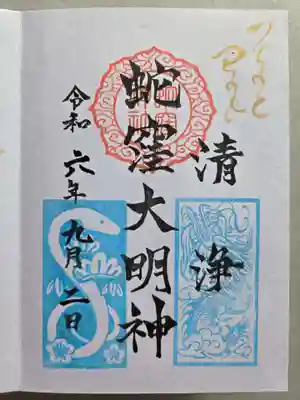 清浄
蛇窪大明神
令和六年九月二日